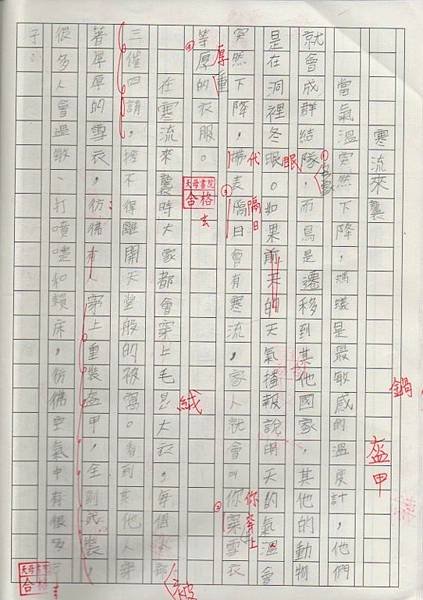 寒流來襲
當氣溫突然下降，螞蟻是最敏感的溫度計，他們
就會成群結隊，而鳥是遷移到其他國家，其他的動物
是在洞裡冬眠。如果前來的天氣播報說明天的氣溫會
突然下降，帶表隔日會有寒流，家人就會叫你穿雪衣
等厚的衣服。
在寒流來襲時大家都會穿上毛大衣，每個
三催四請，捨不得離開天堂般的被窩。看到其他人穿
著厚厚的雪衣，彷彿有人穿上重裝盔甲，全副武裝，
從多人會過敏，打噴嚏和賴床，彷彿空氣中有很多
代
眠
隔日
厚重
你穿上
絨
被
鍋
盔甲
天母書院
合格
合格